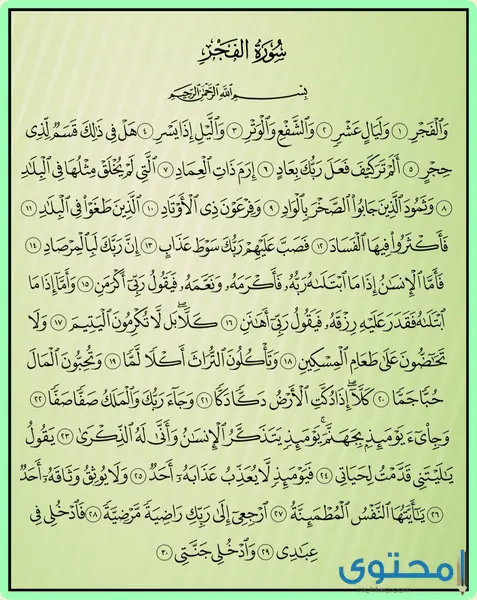 سُورَةُ الفَجْرِ
بِسْمِ ٱللَّهِ ٱلرَّحْمَٰنِ ٱلرَّحِيمِ
وَٱلْفَجْرِ ١ وَلَيَالٍ عَشْرٍ ٢ وَٱلشَّفْعِ وَٱلْوَتْرِ ٣ وَٱلَّيْلِ إِذَا يَسْرِ ٤ هَلْ فِي ذَٰلِكَ قَسَمٌ لِّذِي
حِجْرٍ ٥ أَلَمْ تَرَ كَيْفَ فَعَلَ رَبُّكَ بِعَادٍ ٦ إِرَمَ ذَاتِ ٱلْعِمَادِ ٧ ٱلَّتِي لَمْ يُخْلَقْ مِثْلُهَا فِي ٱلْبِلَٰدِ
٨ وَثَمُودَ ٱلَّذِينَ جَابُوا۟ ٱلصَّخْرَ بِٱلْوَادِ ٩ وَفِرْعَوْنَ ذِي ٱلْأَوْتَادِ ١٠ ٱلَّذِينَ طَغَوْا۟ فِي ٱلْبِلَٰدِ ١١
فَأَكْثَرُوا۟ فِيهَا ٱلْفَسَادَ ١٢ فَصَبَّ عَلَيْهِمْ رَبُّكَ سَوْطَ عَذَابٍ ١٣ إِنَّ رَبَّكَ لَبِٱلْمِرْصَادِ ١٤
فَأَمَّا ٱلْإِنسَٰنُ إِذَا مَا ٱبْتَلَىٰهُ رَبُّهُۥ فَأَكْرَمَهُۥ وَنَعَّمَهُۥ فَيَقُولُ رَبِّيٓ أَكْرَمَنِ ١٥ وَأَمَّآ إِذَا مَا
ٱبْتَلَىٰهُ فَقَدَرَ عَلَيْهِ رِزْقَهُۥ فَيَقُولُ رَبِّيٓ أَهَٰنَنِ ١٦ كَلَّا ۖ بَل لَّا تُكْرِمُونَ ٱلْيَتِيمَ ١٧ وَلَا
تَحَٰٓضُّونَ عَلَىٰ طَعَامِ ٱلْمِسْكِينِ ١٨ وَتَأْكُلُونَ ٱلتُّرَاثَ أَكْلًا لَّمًّا ١٩ وَتُحِبُّونَ ٱلْمَالَ
حُبًّا جَمًّا ٢٠ كَلَّآ ۖ إِذَا دُكَّتِ ٱلْأَرْضُ دَكًّا دَكًّا ٢١ وَجَآءَ رَبُّكَ وَٱلْمَلَكُ صَفًّا صَفًّا ٢٢
وَجِا۟يٓءَ يَوْمَئِذٍۭ بِجَهَنَّمَ ۚ يَوْمَئِذٍ يَتَذَكَّرُ ٱلْإِنسَٰنُ وَأَنَّىٰ لَهُ ٱلذِّكْرَىٰ ٢٣ يَقُولُ
يَٰلَيْتَنِي قَدَّمْتُ لِحَيَاتِي ٢٤ فَيَوْمَئِذٍ لَّا يُعَذِّبُ عَذَابَهُۥٓ أَحَدٌ ٢٥ وَلَا يُوثِقُ وَثَاقَهُۥٓ أَحَدٌ
٢٦ يَٰٓأَيَّتُهَا ٱلنَّفْسُ ٱلْمُطْمَئِنَّةُ ٢٧ ٱرْجِعِيٓ إِلَىٰ رَبِّكِ رَاضِيَةً مَّرْضِيَّةً ٢٨ فَٱدْخُلِي فِي
عِبَٰدِي ٢٩ وَٱدْخُلِي جَنَّتِي ٣٠
محتوى